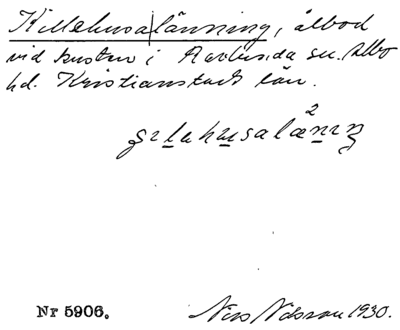 Killehusa|länning, ålbod
vid kusten i Ravlunda sn. Albo
hd. Kristianstads län.
Nr 5906. Nils Nilsson 1930.